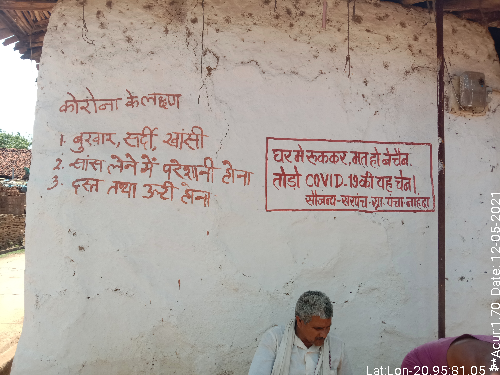 कोरोना के लक्षण
1. बुखार, सर्दी, खांसी
2. सांस लेने में परेशानी होना
3. दस्त तथा उल्टी होना
घर मे रूककर, मत हो बेचैन
तोड़ो COVID-19 की यह चैन।
सौजन्य-सरपंच-ग्रा-पंचा-नाहंदा
Lat:Lon-20.95:81.05
**Acur:1.70 Date: 12-05-2021